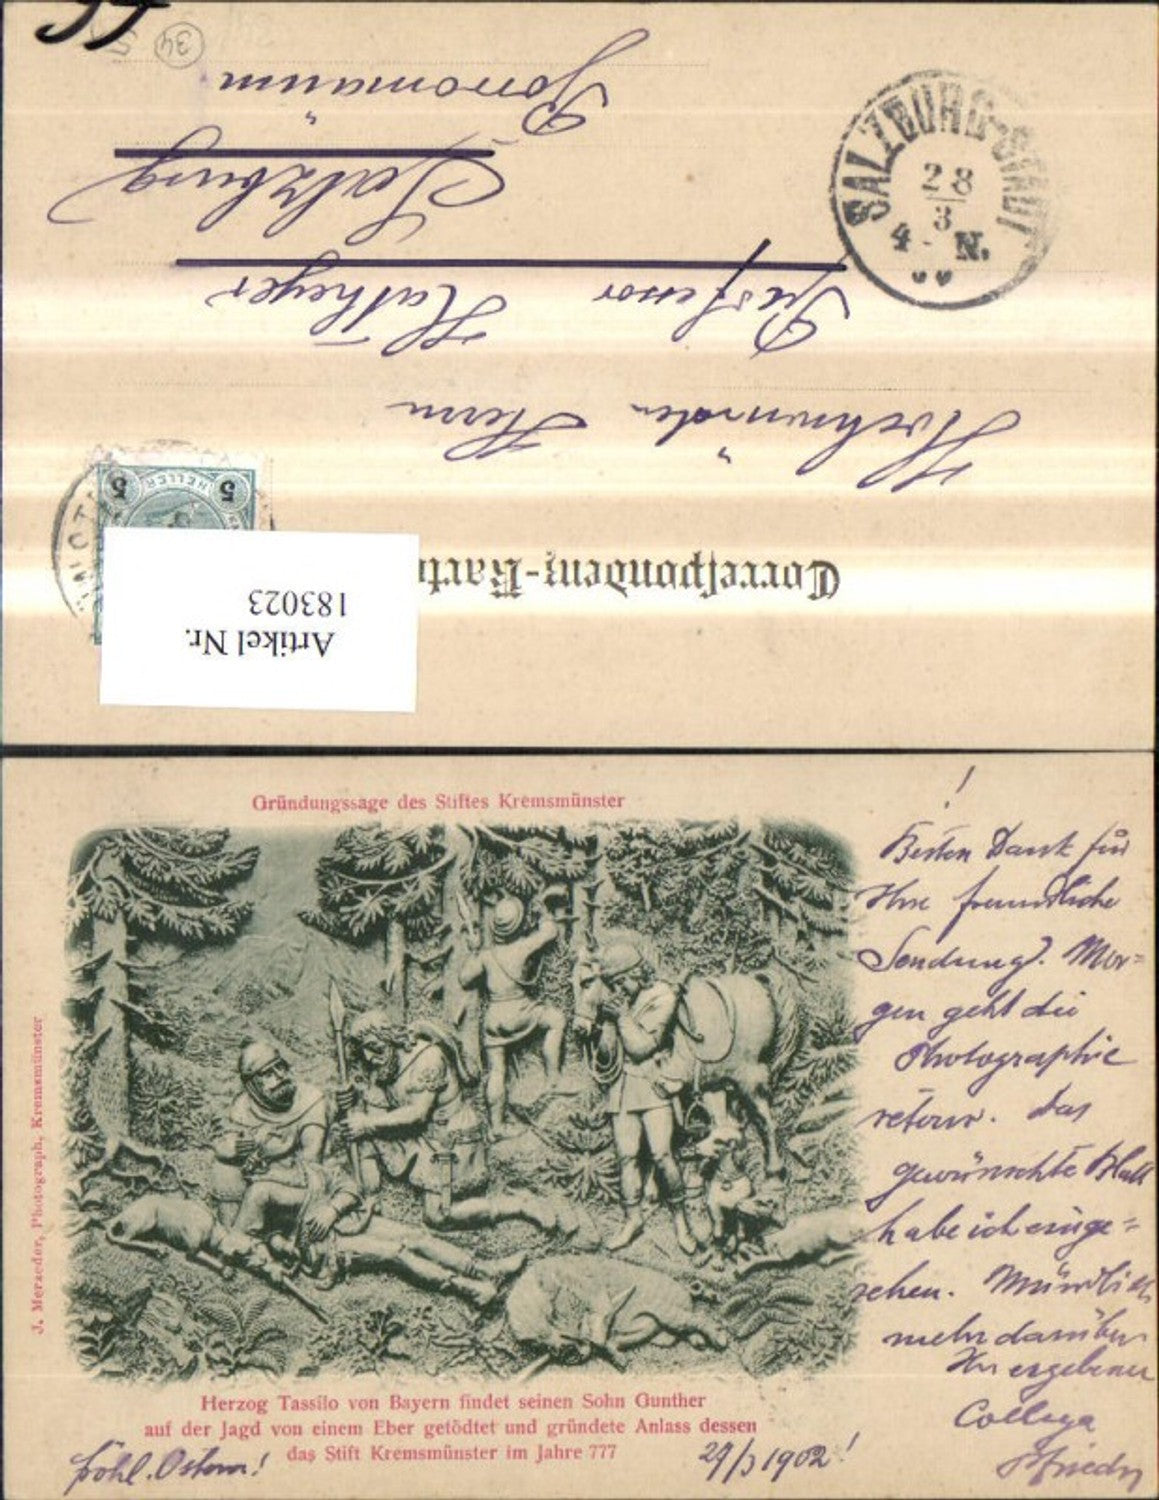 Correspondenz-Karte
Hochwürden Herrn
Professor Katheyer
Salzburg
Borromäum
34
SALZBURG-STADT
28
3
4 - N.
5 HELLER 5
Artikel Nr.
183023
Gründungssage des Stiftes Kremsmünster
J. Merzeder, Photograph, Kremsmünster
Herzog Tassilo von Bayern findet seinen Sohn Gunther
auf der Jagd von einem Eber getödtet und gründete Anlass dessen
das Stift Kremsmünster im Jahre 777
!
Besten Dank für
Ihre freundliche
Sendung. Mor=
gen geht die
Photographie
retour. das
gewünschte Blatt
habe ich einge=
sehen. Mündlich
mehr darüber
Ihr ergebener
Collega
fröhl. Ostern!
29/3 1902!